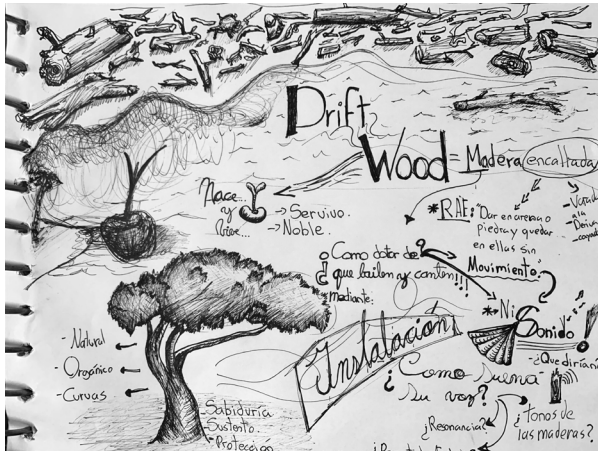 Drift
Wood = Madera encallada
Nace...
y
→ Servivo.
→ Noble.
*RAE: "Dar en arena o
piedra y quedar
en ellas sin
Movimiento"
- a la
¿Como dotar de
que bailen y canten!!!
*mediante:
Instalación
*Ni Sonido!
- ¿Que dirian
¿Como suena
su voz?
¿Resonancia?
¿tonos de
las maderas?
- Natural
- Orgánico
- Curvas
Sabiduría
Sustento.
- Protección